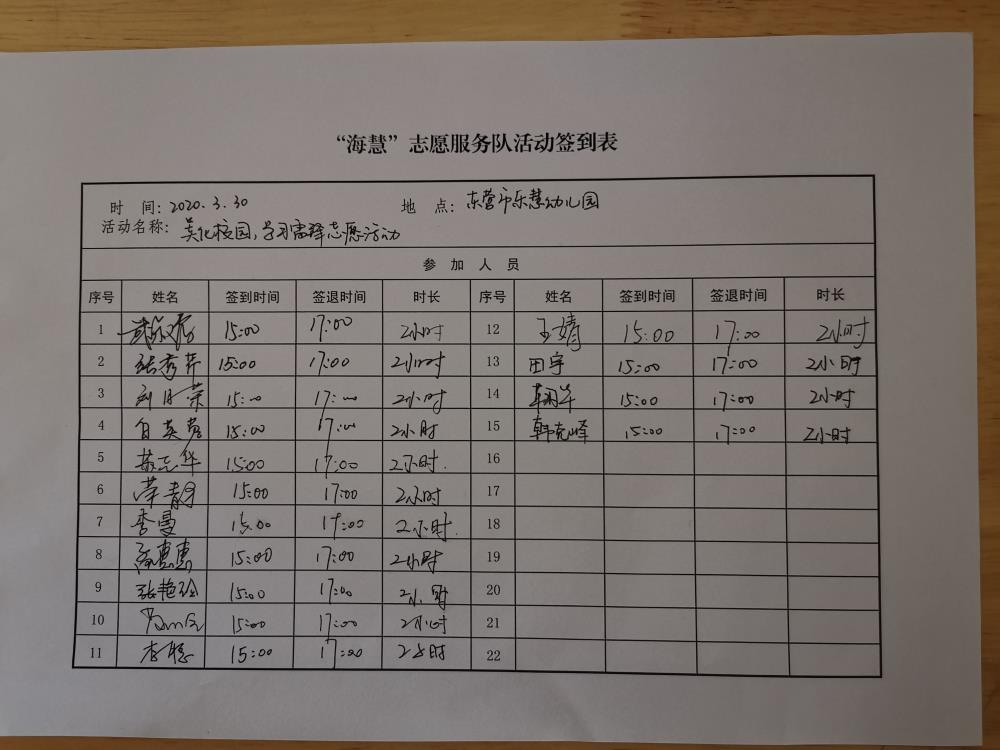 “海慧”志愿服务队活动签到表
时 间：2020.3.30 地 点：东营市乐慧幼儿园
活动名称：美化校园，学习雷锋志愿活动
参 加 人 员
序号 姓名 签到时间 签退时间 时长 序号 姓名 签到时间 签退时间 时长
1 15:00 17:00 2小时 12 王婧 15:00 17:00 2小时
2 张秀芹 15:00 17:00 2小时 13 田宇 15:00 17:00 2小时
3 刘月荣 15:00 17:00 2小时 14 15:00 17:00 2小时
4 15:00 17:00 2小时 15 韩克峰 15:00 17:00 2小时
5 苏志华 15:00 17:00 2小时. 16
6 荣静 15:00 17:00 2小时 17
7 李曼 15:00 17:00 2小时. 18
8 惠惠 15:00 17:00 2小时 19
9 张艳玲 15:00 17:00 2小时 20
10 15:00 17:00 2小时 21
11 李聪 15:00 17:00 2小时 22